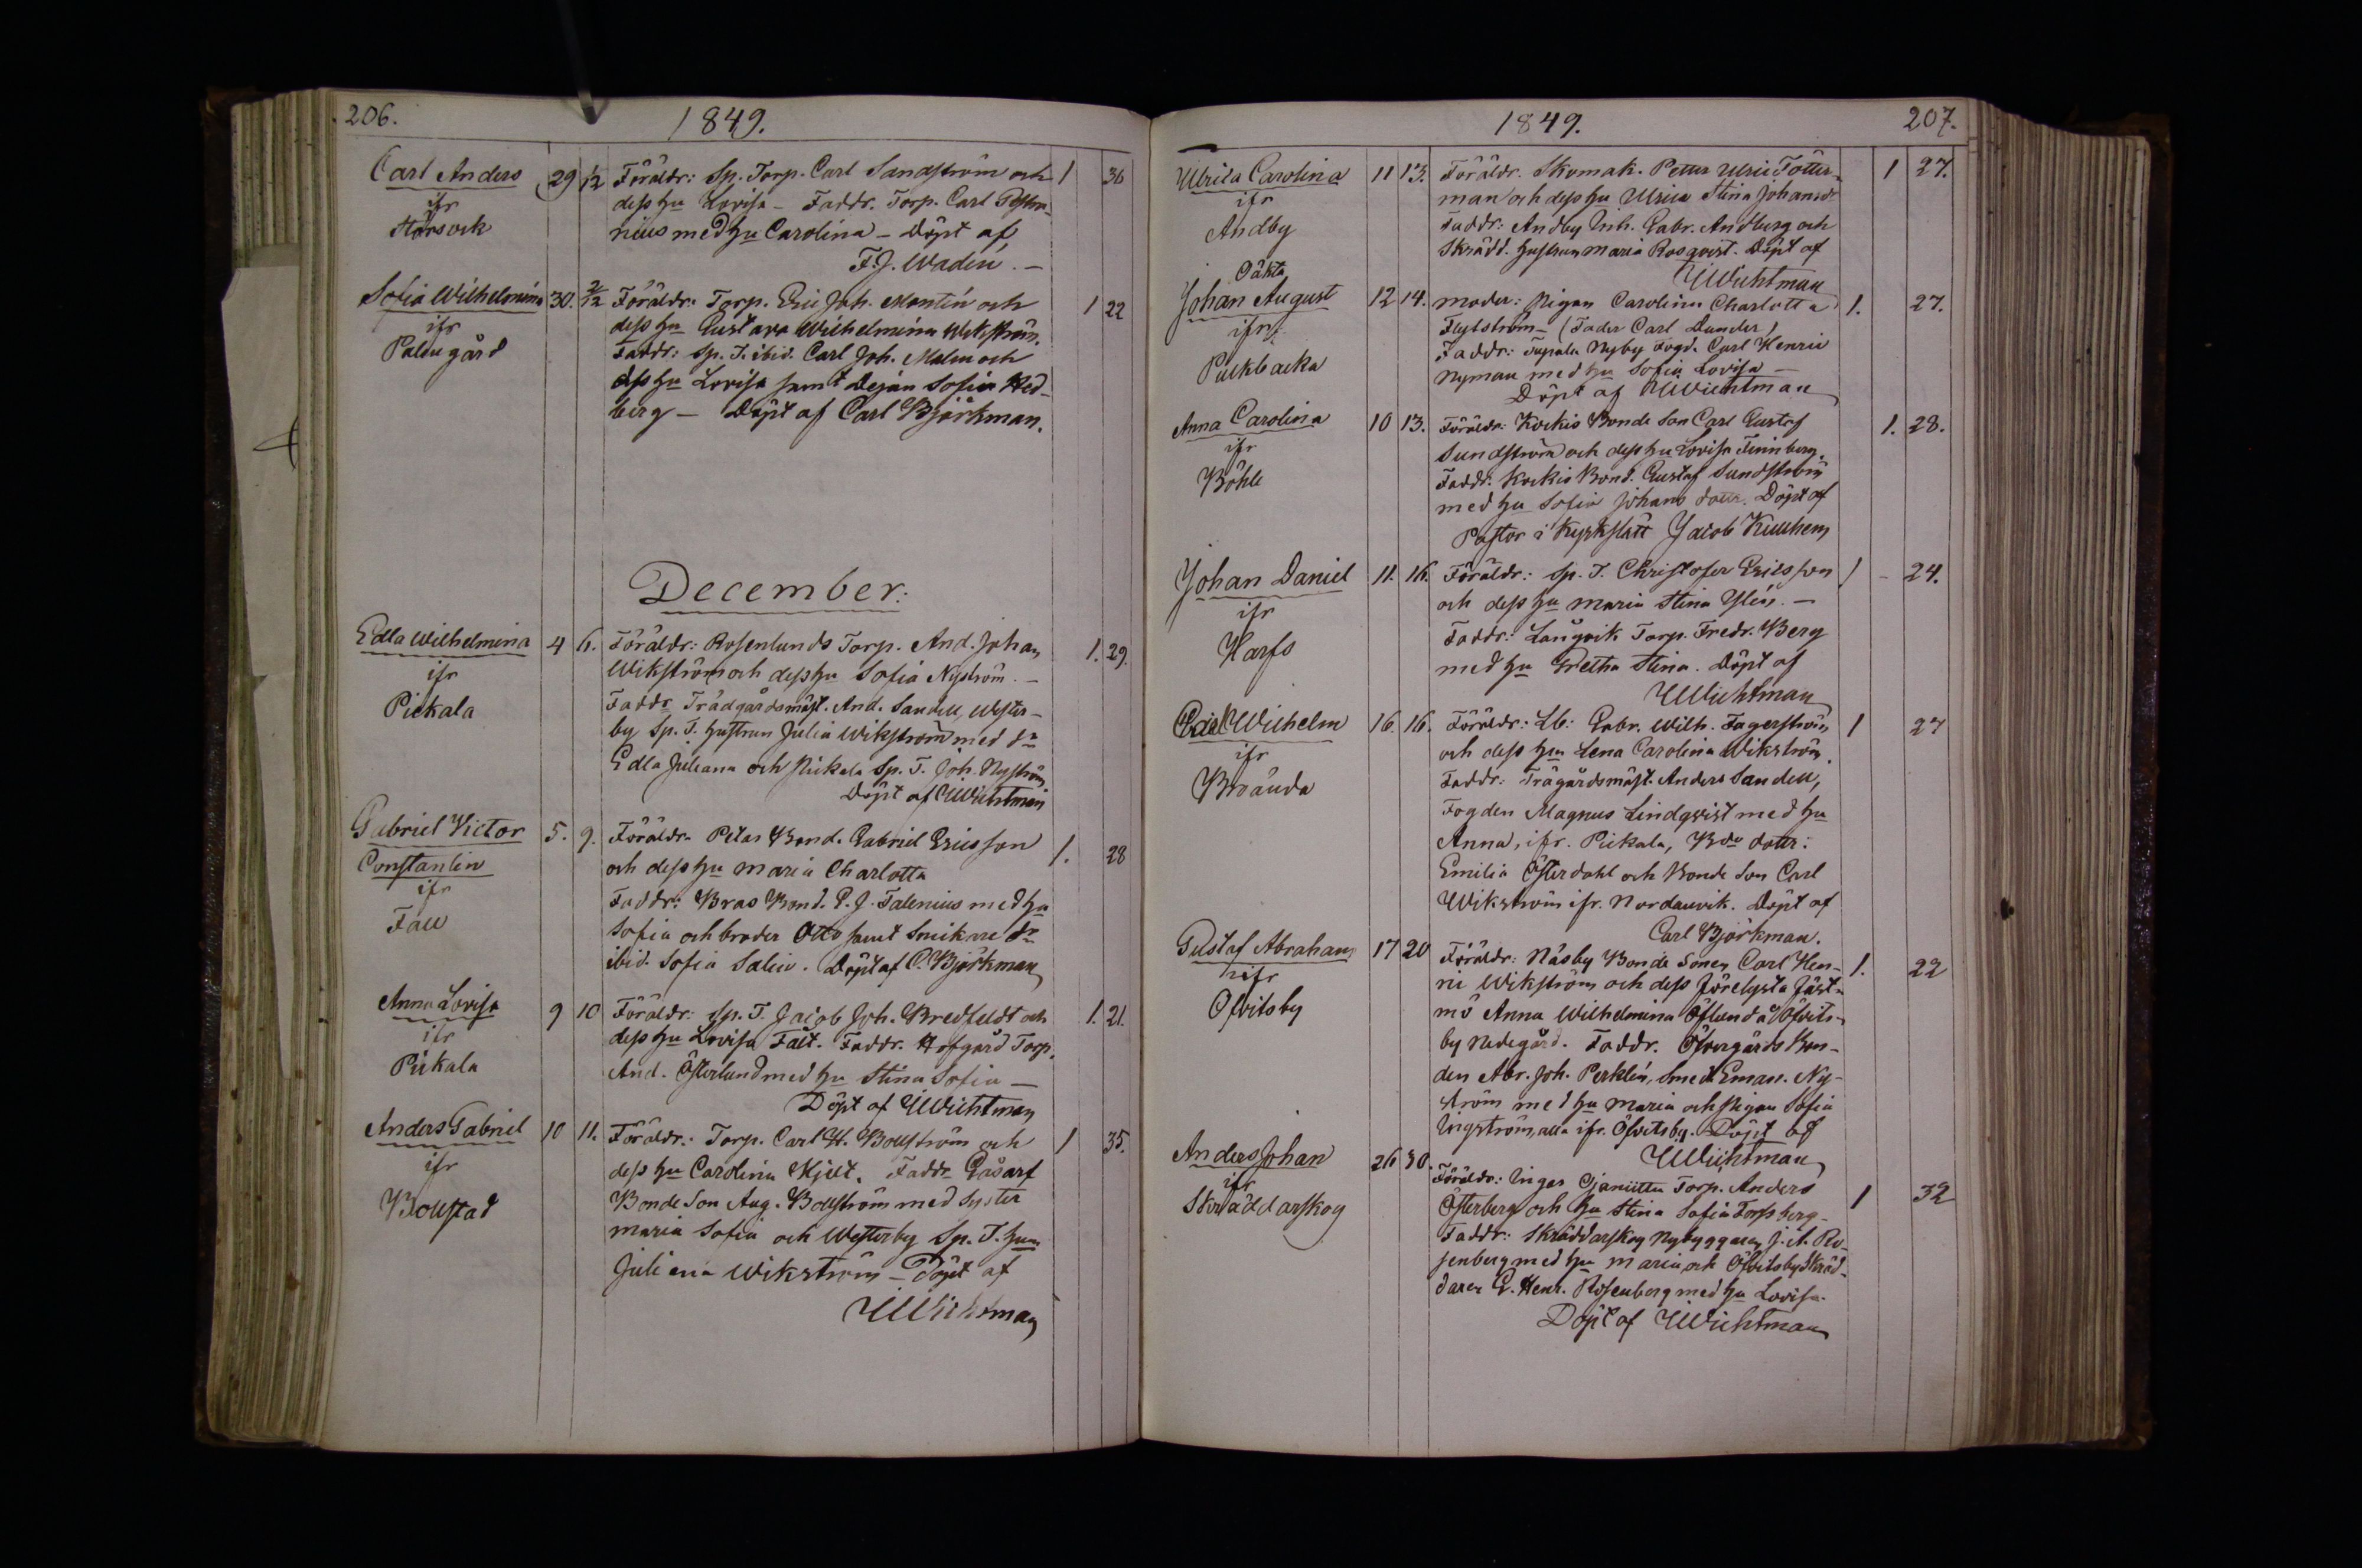 206.
1849.
Carl Anders 29 1/12 Föräldr: Sp. Torp. Carl Sandström och 1 36
ifr dess hu Lovisa – Faddr. Torp. Carl
Störsvik nius med hu Carolina – Döpt af
F. J. Wadén. –
Sofia Wilhelmina 30. 2/12 Föräldr: Torp. Eric Joh. Montin och 1 22
ifr dess hu Gustava Wilhelmina Wikström.
Palsugård Faddr: Sp. T. ibid. Carl Joh. Malm och
dess hu Lovisa samt Dejan Sofia Hed-
berg – Döpt af Carl Björkman.
December:
Edla Wilhelmina 4 6. Föräldr: Rosenlunds Torp. And. Johan 1. 29.
ifr Wikström och dess hu Sofia Nyström. –
Pickala Faddr Trädgårdsmäst. And. Sandell, Wester-
by Sp. T. hustrun Julia Wikström med dr
Edla Juliana och Pickala Sp. T. Joh. Nyström
Döpt af UWichtman
Gabriel Victor 5. 9. Föräldr. Petas Bond. Gabriel Ericsson 1. 28
Constantin och dess hu Maria Charlotta
ifr Faddr: Bras Bond. G. J. Falenius med hu
Fall Sofia och broder Otto samt Snickare dr
ibid. Sofia Salin. Döpt af C. Björkman
Anna Lovisa 9 10 Föräldr: Sp. T. Jacob Joh. Bredfeldt och 1. 21.
ifr dess hu Lovisa Fält. Faddr. Hofgård Torp.
Pickala And. Österlund med hu Stina Sofia –
Döpt af UWichtman
Anders Gabriel 10 11. Föräldr.: Torp. Carl H. Bollström och 1 35.
ifr dess hu Carolina Skjelt. Faddr Gåsarf
Bollstad Bonde Son Aug. Bollström med Syster
Maria Sofia och Westerby Sp. T. hum
Juliana Wikström – Döpt af
UWichtman
1849.
207.
Ulrica Carolina 11 13. Föräldr. Skomak. Petter Ulric Tötter- 1 27.
ifr man och dess hu Ulrica Stina Johansdr
Andby Faddr: Andby Inh. Gabr. Andberg och
Skrädd. hustrun Maria Rosqvist. Döpt af
UWichtman
Oäkta
Johan August 12 14. Moder: Pigan Carolina Charlotta 1. 27.
ifr Flytström – (Fader Carl Dunder)
Puckbacka Faddr: Nyby Fogd. Carl Henric
Nyman med hu Sofia Lovisa –
Döpt af UWichtman
Anna Carolina 10 13. Föräldr: Kockis Bonde Son Carl Gustaf 1. 28.
ifr Sundström och dess hu Lovisa Finnberg.
Böhle Faddr. Kockis Bond. Gustaf Sundström
med hu Sofia Johans dotr. Döpt af
Pastor i Kyrkslätt Jacob
Johan Daniel 11. 16. Föräldr: Sp. T. Christofer Ericsson 1 – 24.
ifr och dess hu Maria Stina Ylén. –
Harfs Faddr: Långvik Torp. Fredr. Berg
med hu Gretha Stina. Döpt af
UWichtman
Carl Wilhelm 16. 16. Föräldr: Lb: Gabr. Wilh. Fagerström 1 27
ifr och dess hu Lena Carolina Wikström.
Broända Faddr: Trägårdsmäst. Anders Sandell,
Fogden Magnus Lindqvist med hu
Anna, ifr. Pickala, Bde dottr:
Emilia Österdahl och Bonde Son Carl
Wikström ifr. Nordanvik. Döpt af
Carl Björkman.
Gustaf Abraham 17 20 Föräldr: Näsby Bonde Sonen Carl Hen- 1. 22
ifr ric Wikström och dess förelysta fäst-
Ofvitsby mö Anna Wilhelmina Öflund å Ofvits-
by Nedegård. Faddr. Öfvergårds Bon-
den Abr. Joh. Perklén, Smed Eman. Ny-
ström med hu Maria och Pigan Sofia
Wigström, alla ifr. Ofvitsby. Döpt af
UWichtman
Anders Johan 26 30. Föräldr: Ingas Torp. Anders 1 32
ifr Österberg och hu Stina Sofia Forssberg –
Skräddarskog Faddr: Skräddarskog Nybyggaren J. A. Ro-
senberg med hu Maria och Ofvitsby Skräd-
daren G. Henr. Rosenberg med hu Lovisa.
Döpt af UWichtman